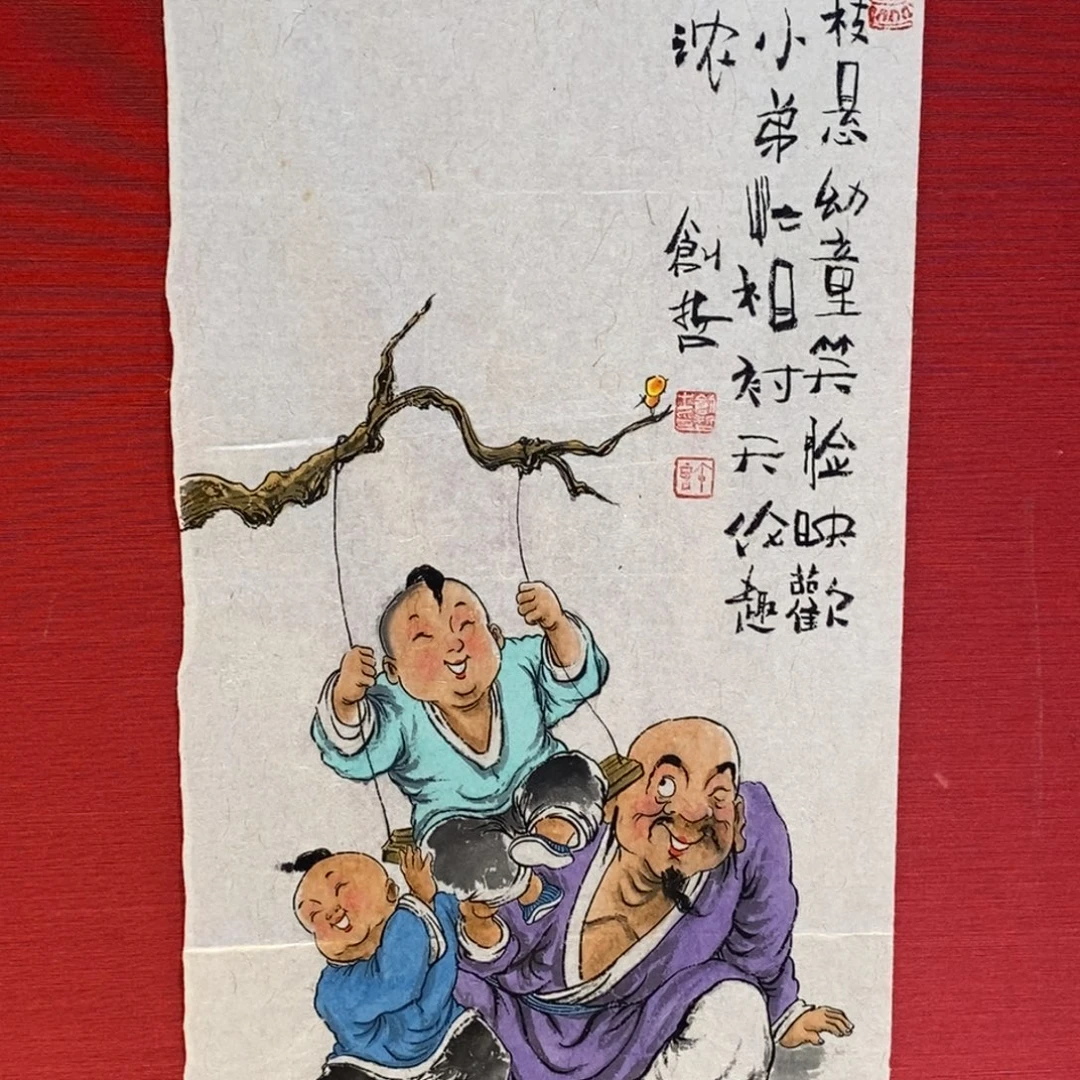 枝悬幼童笑脸映歡
小弟忙相衬天伦趣
浓
創哲